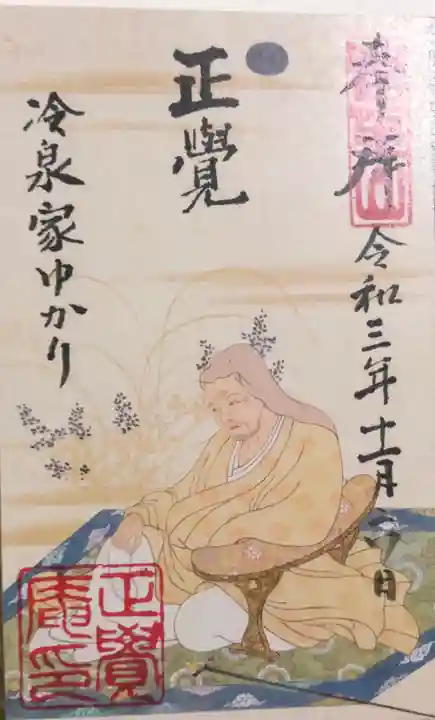 奉拝
令和三年十一月六日
正覺
冷泉家ゆかり
正覺
庵印